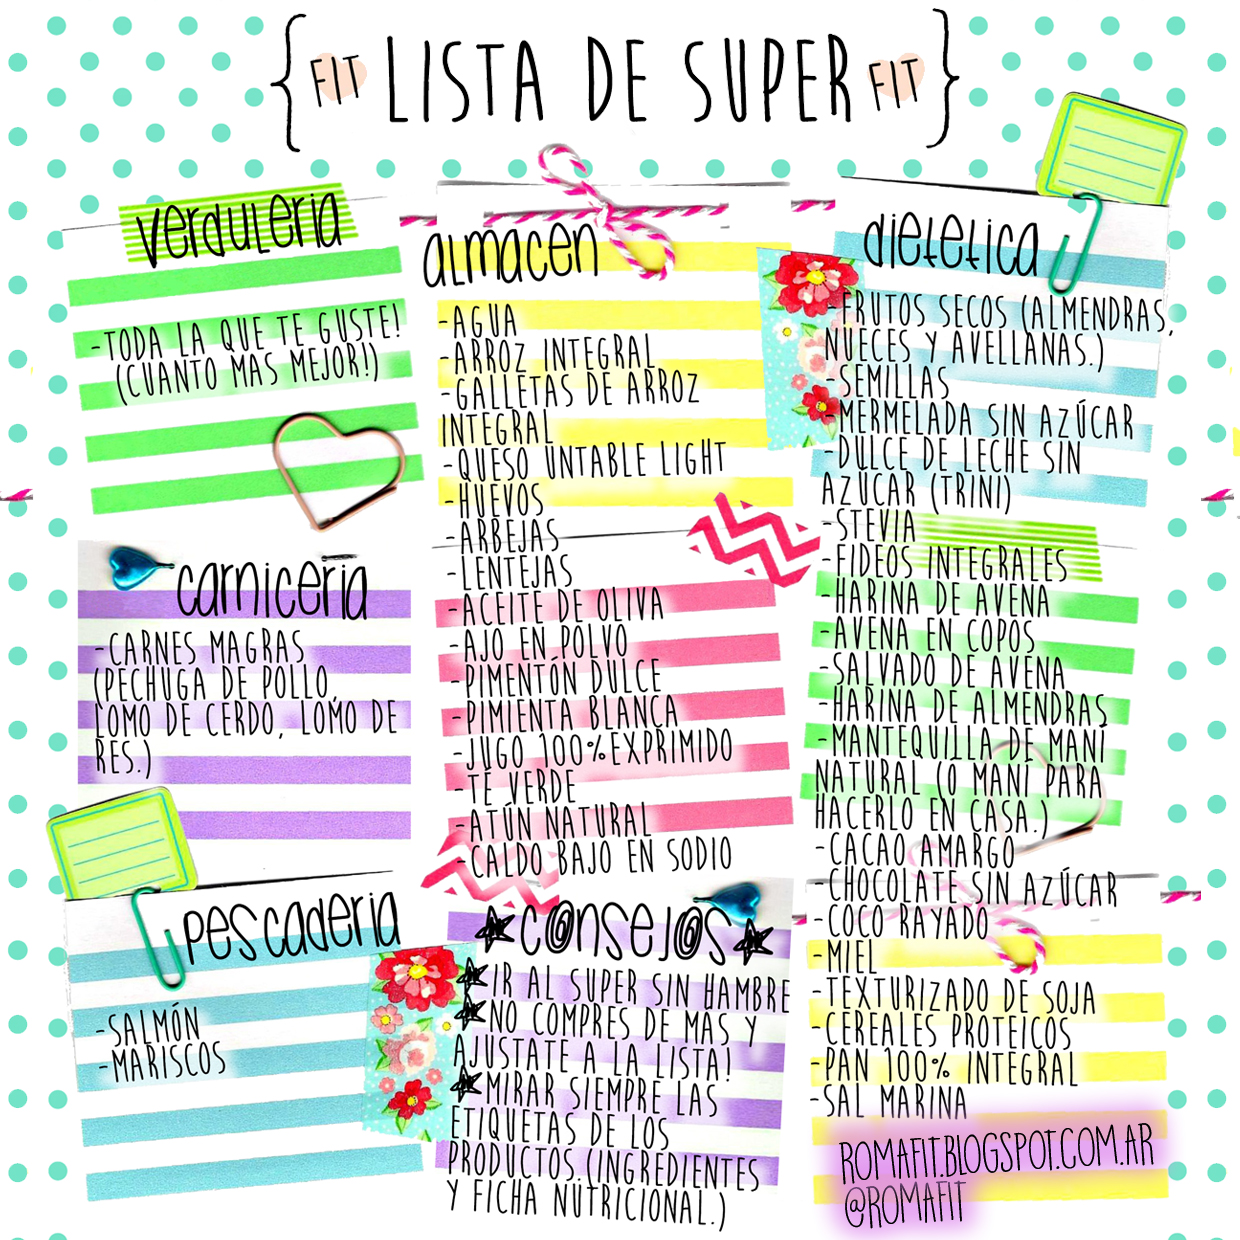 { FIT LISTA DE SUPER FIT }
VERDULERIA
-TODA LA QUE TE GUSTE!
(CUANTO MAS MEJOR!)
CARNICERÍA
-CARNES MAGRAS
(PECHUGA DE POLLO,
LOMO DE CERDO, LOMO DE
RES.)
PESCADERIA
-SALMÓN
-MARISCOS
ALMACEN
-AGUA
-ARROZ INTEGRAL
-GALLETAS DE ARROZ
INTEGRAL
-QUESO UNTABLE LIGHT
-HUEVOS
-ARBEJAS
-LENTEJAS
-ACEITE DE OLIVA
-AJO EN POLVO
-PIMENTÓN DULCE
-PIMIENTA BLANCA
-JUGO 100%EXPRIMIDO
-TE VERDE
-ATÚN NATURAL
-CALDO BAJO EN SODIO
★CONSEJOS★
★IR AL SUPER SIN HAMBRE
★NO COMPRES DE MAS Y
AJUSTATE A LA LISTA!
★MIRAR SIEMPRE LAS
ETIQUETAS DE LOS
PRODUCTOS.(INGREDIENTES
Y FICHA NUTRICIONAL.)
DIETETICA
-FRUTOS SECOS (ALMENDRAS,
NUECES Y AVELLANAS.)
-SEMILLAS
-MERMELADA SIN AZÚCAR
-DULCE DE LECHE SIN
AZUCAR (TRINI)
-STEVIA
-FIDEOS INTEGRALES
-HARINA DE AVENA
-AVENA EN COPOS
-SALVADO DE AVENA
-HARINA DE ALMENDRAS
-MANTEQUILLA DE MANÍ
NATURAL (O MANÍ PARA
HACERLO EN CASA.)
-CACAO AMARGO
-CHOCOLATE SIN AZÚCAR
-COCO RAYADO
-MIEL
-TEXTURIZADO DE SOJA
-CEREALES PROTEICOS
-PAN 100% INTEGRAL
-SAL MARINA
ROMAFIT.BLOGSPOT.COM.AR
@ROMAFIT